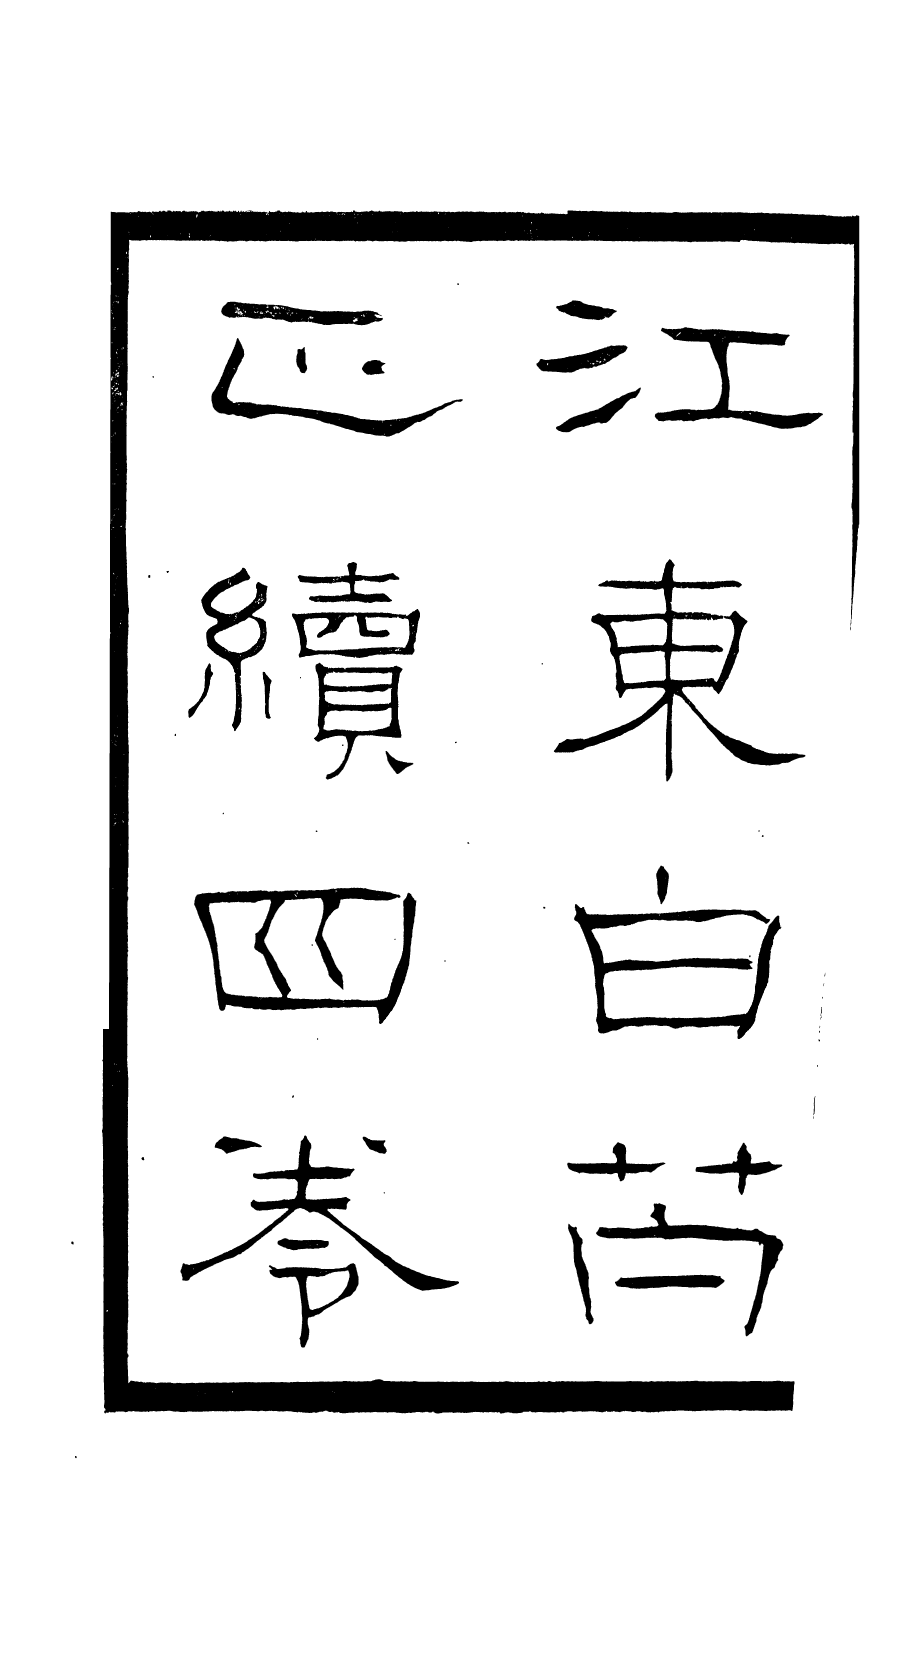 江東白苎
正續四卷